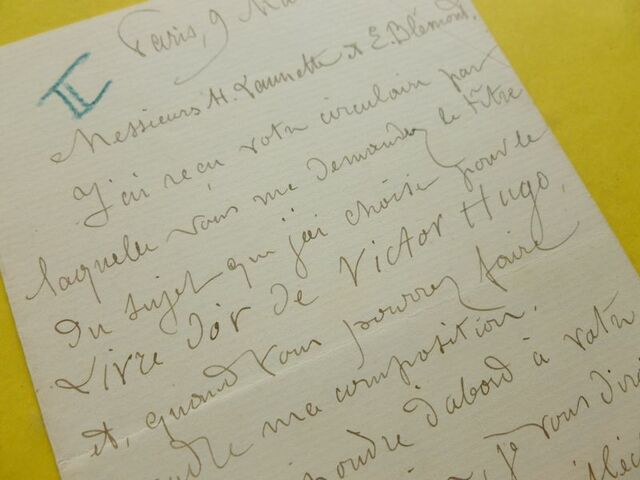 Paris, 9 Ma
II
Messieurs H. Launette & E. Blémont.
J'ai reçu votre circulaire par
laquelle vous me demandez le titre
du sujet que j'ai choisi pour le
Livre d'or de Victor Hugo,
et, quand vous pourrez faire
ndre ma composition.
pondre d'abord à votre
, je vous dirai